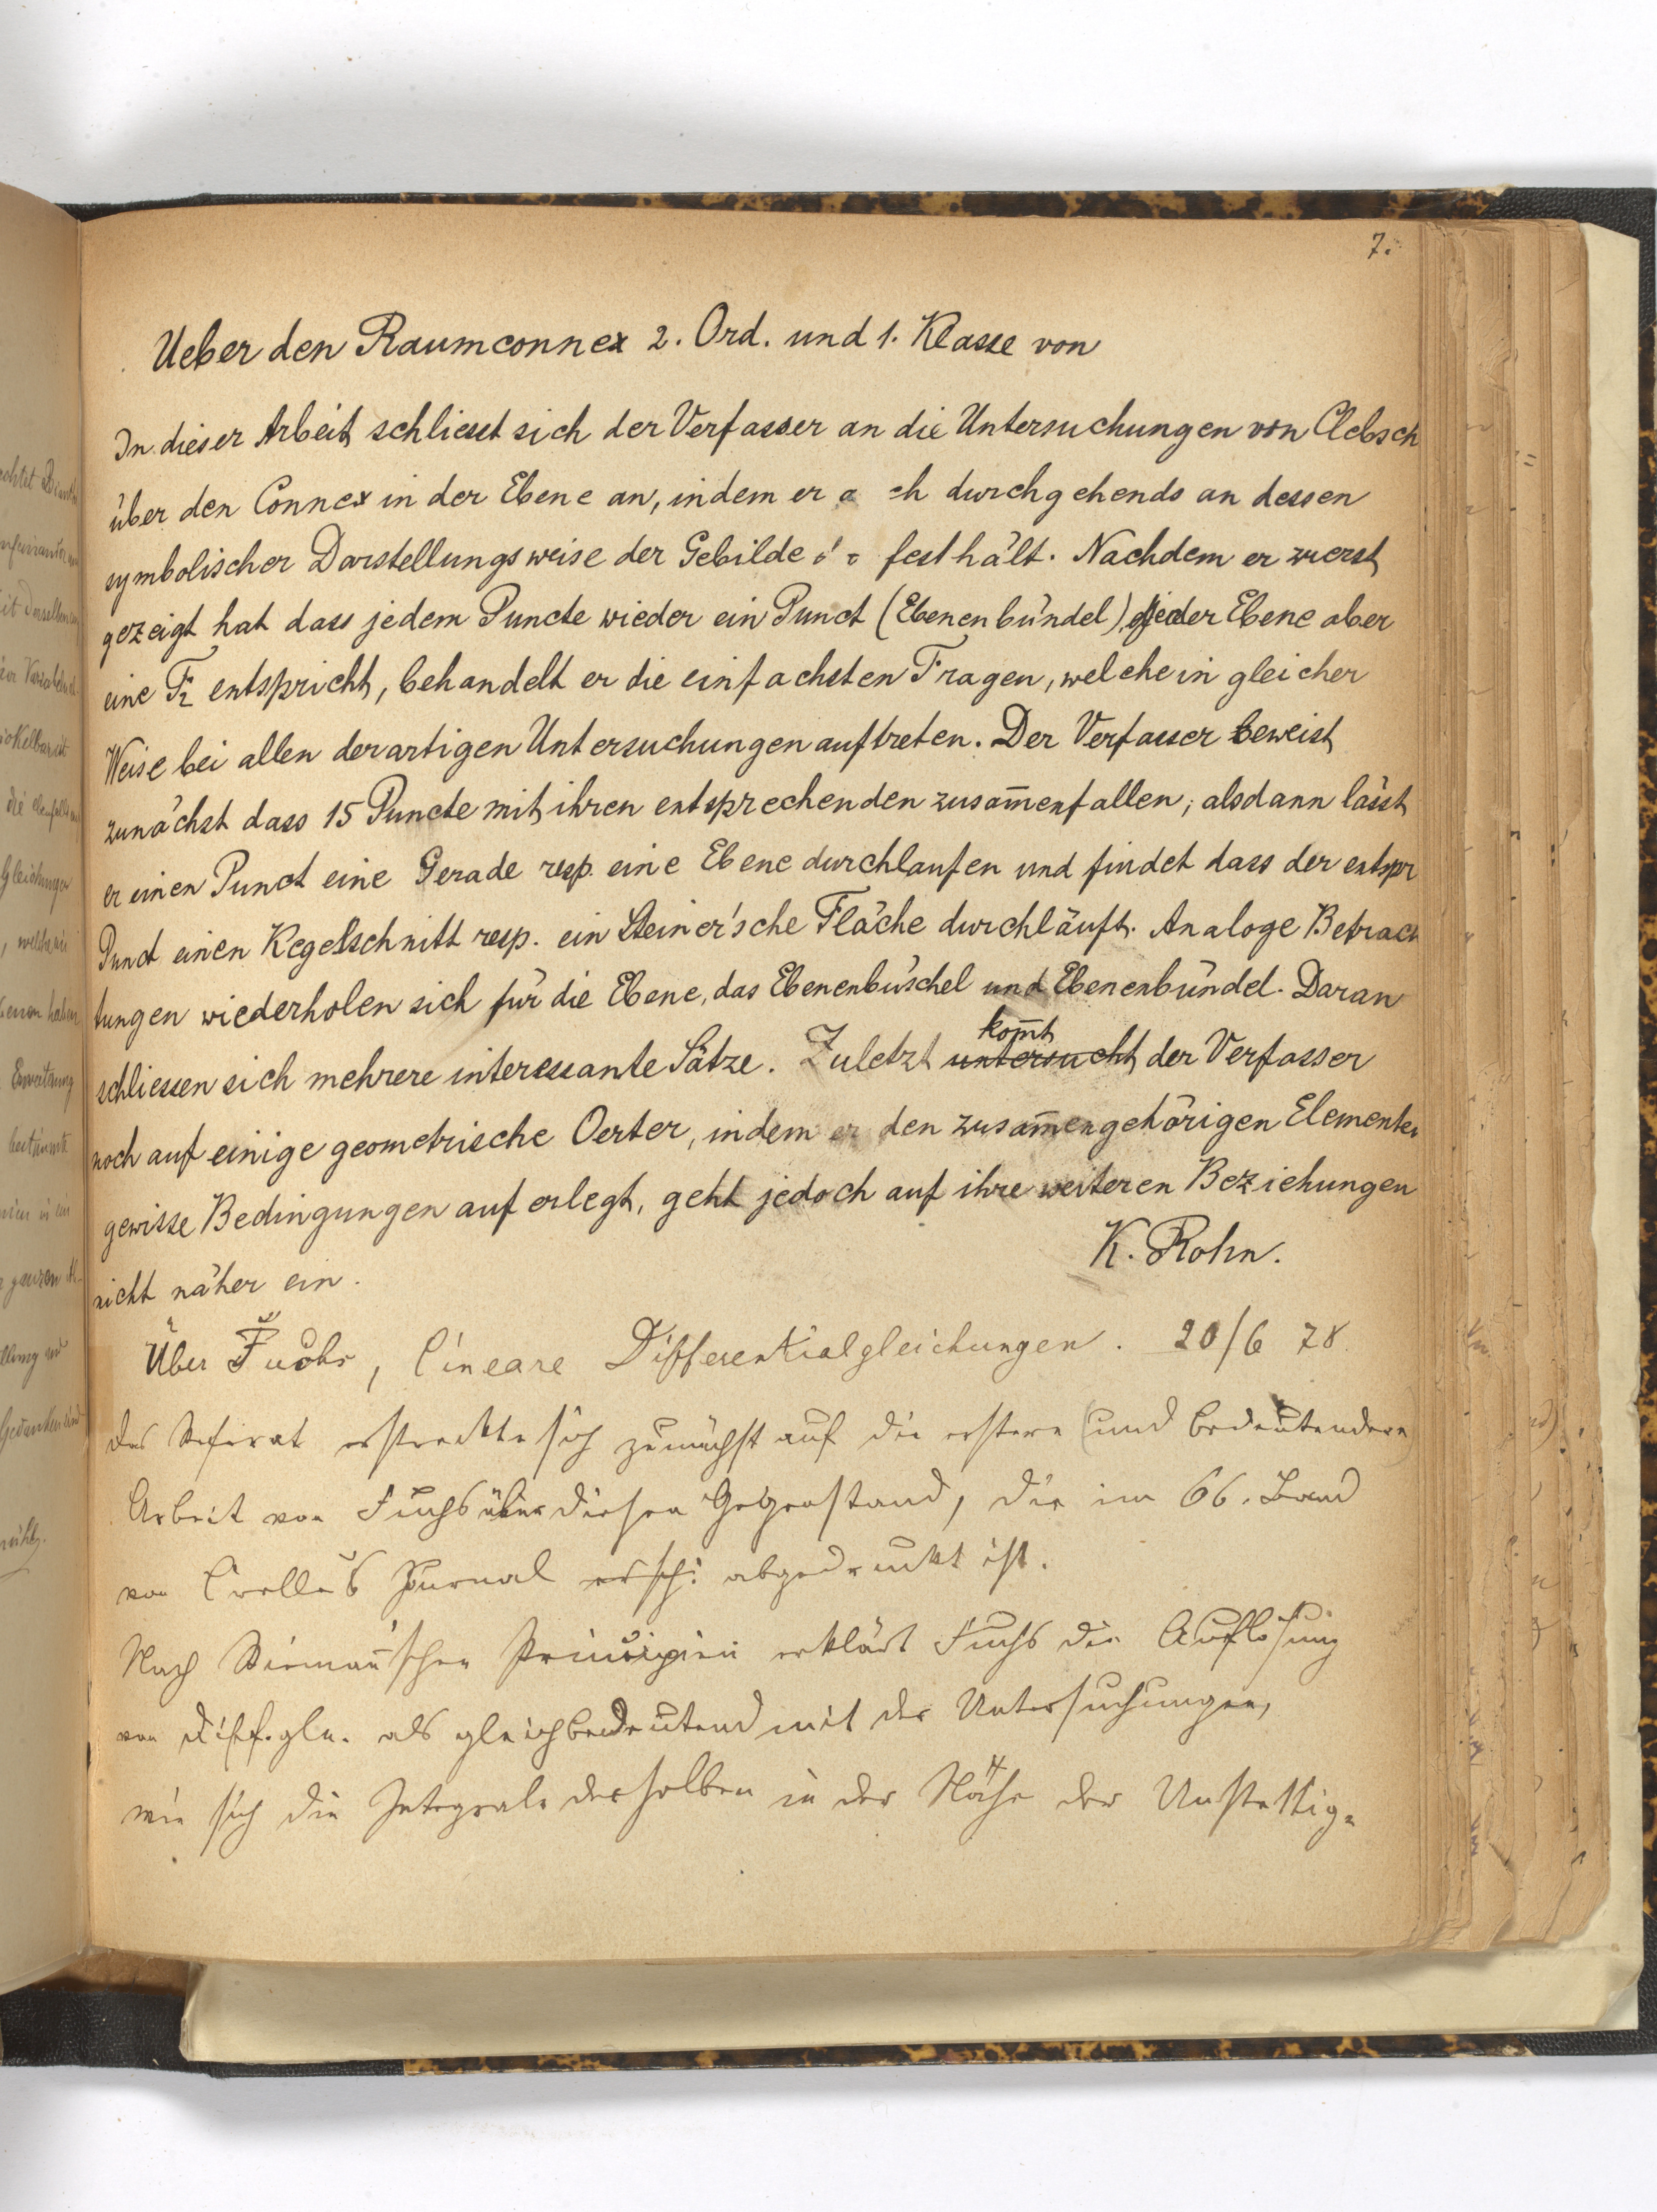 7.
Ueber den Raumconnex 2. Ord. und 1. Klasse von
In dieser Arbeit schliesst sich der Verfasser an die Untersuchungen von Clebsch
über den Connex in der Ebene an, indem er durchgehends an dessen
symbolischer Darstellungsweise der Gebilde festhält. Nachdem er zuerst
gezeigt hat dass jedem Puncte wieder ein Punct (Ebenenbündel), jeder Ebene aber
eine F2 entspricht, behandelt er die einfachsten Fragen, welche in gleicher
Weise bei allen derartigen Untersuchungen auftreten. Der Verfasser beweist
zunächst dass 15 Puncte mit ihren entsprechenden zusam̄enfallen; alsdann lässt
er einen Punct eine Gerade resp. eine Ebene durchlaufen und findet dass der entspr
Punct einen Kegelschnitt resp. ein Steiner'sche Fläche durchläuft. Analoge Betrach
tungen wiederholen sich für die Ebene, das Ebenenbüschel und Ebenenbündel. Daran
schliessen sich mehrere interessante Sätze. Zuletzt untersucht kom̄t der Verfasser
noch auf einige geometrische Oerter, indem er den zusam̄engehörigen Elementen
gewisse Bedingungen auferlegt, geht jedoch auf ihre weiteren Beziehungen
nicht näher ein.
K. Rohn.
Über Fuchs, lineare Differentialgleichungen. 20/6 78.
Das Referat erstreckte sich zunächst auf die erstere (und bedeutendere)
Arbeit von Fuchs über diesen Gegenstand, die im 66. Band
von Crelle's Journal ersch: abgedruckt ist.
Nach Rieman̄'schen Principien erklärt Fuchs die Auflösung
von Diff.gln. als gleichbedeutend mit der Untersuchungen,
wie sich die Integrale derselben in der Nähe der Unstettig-